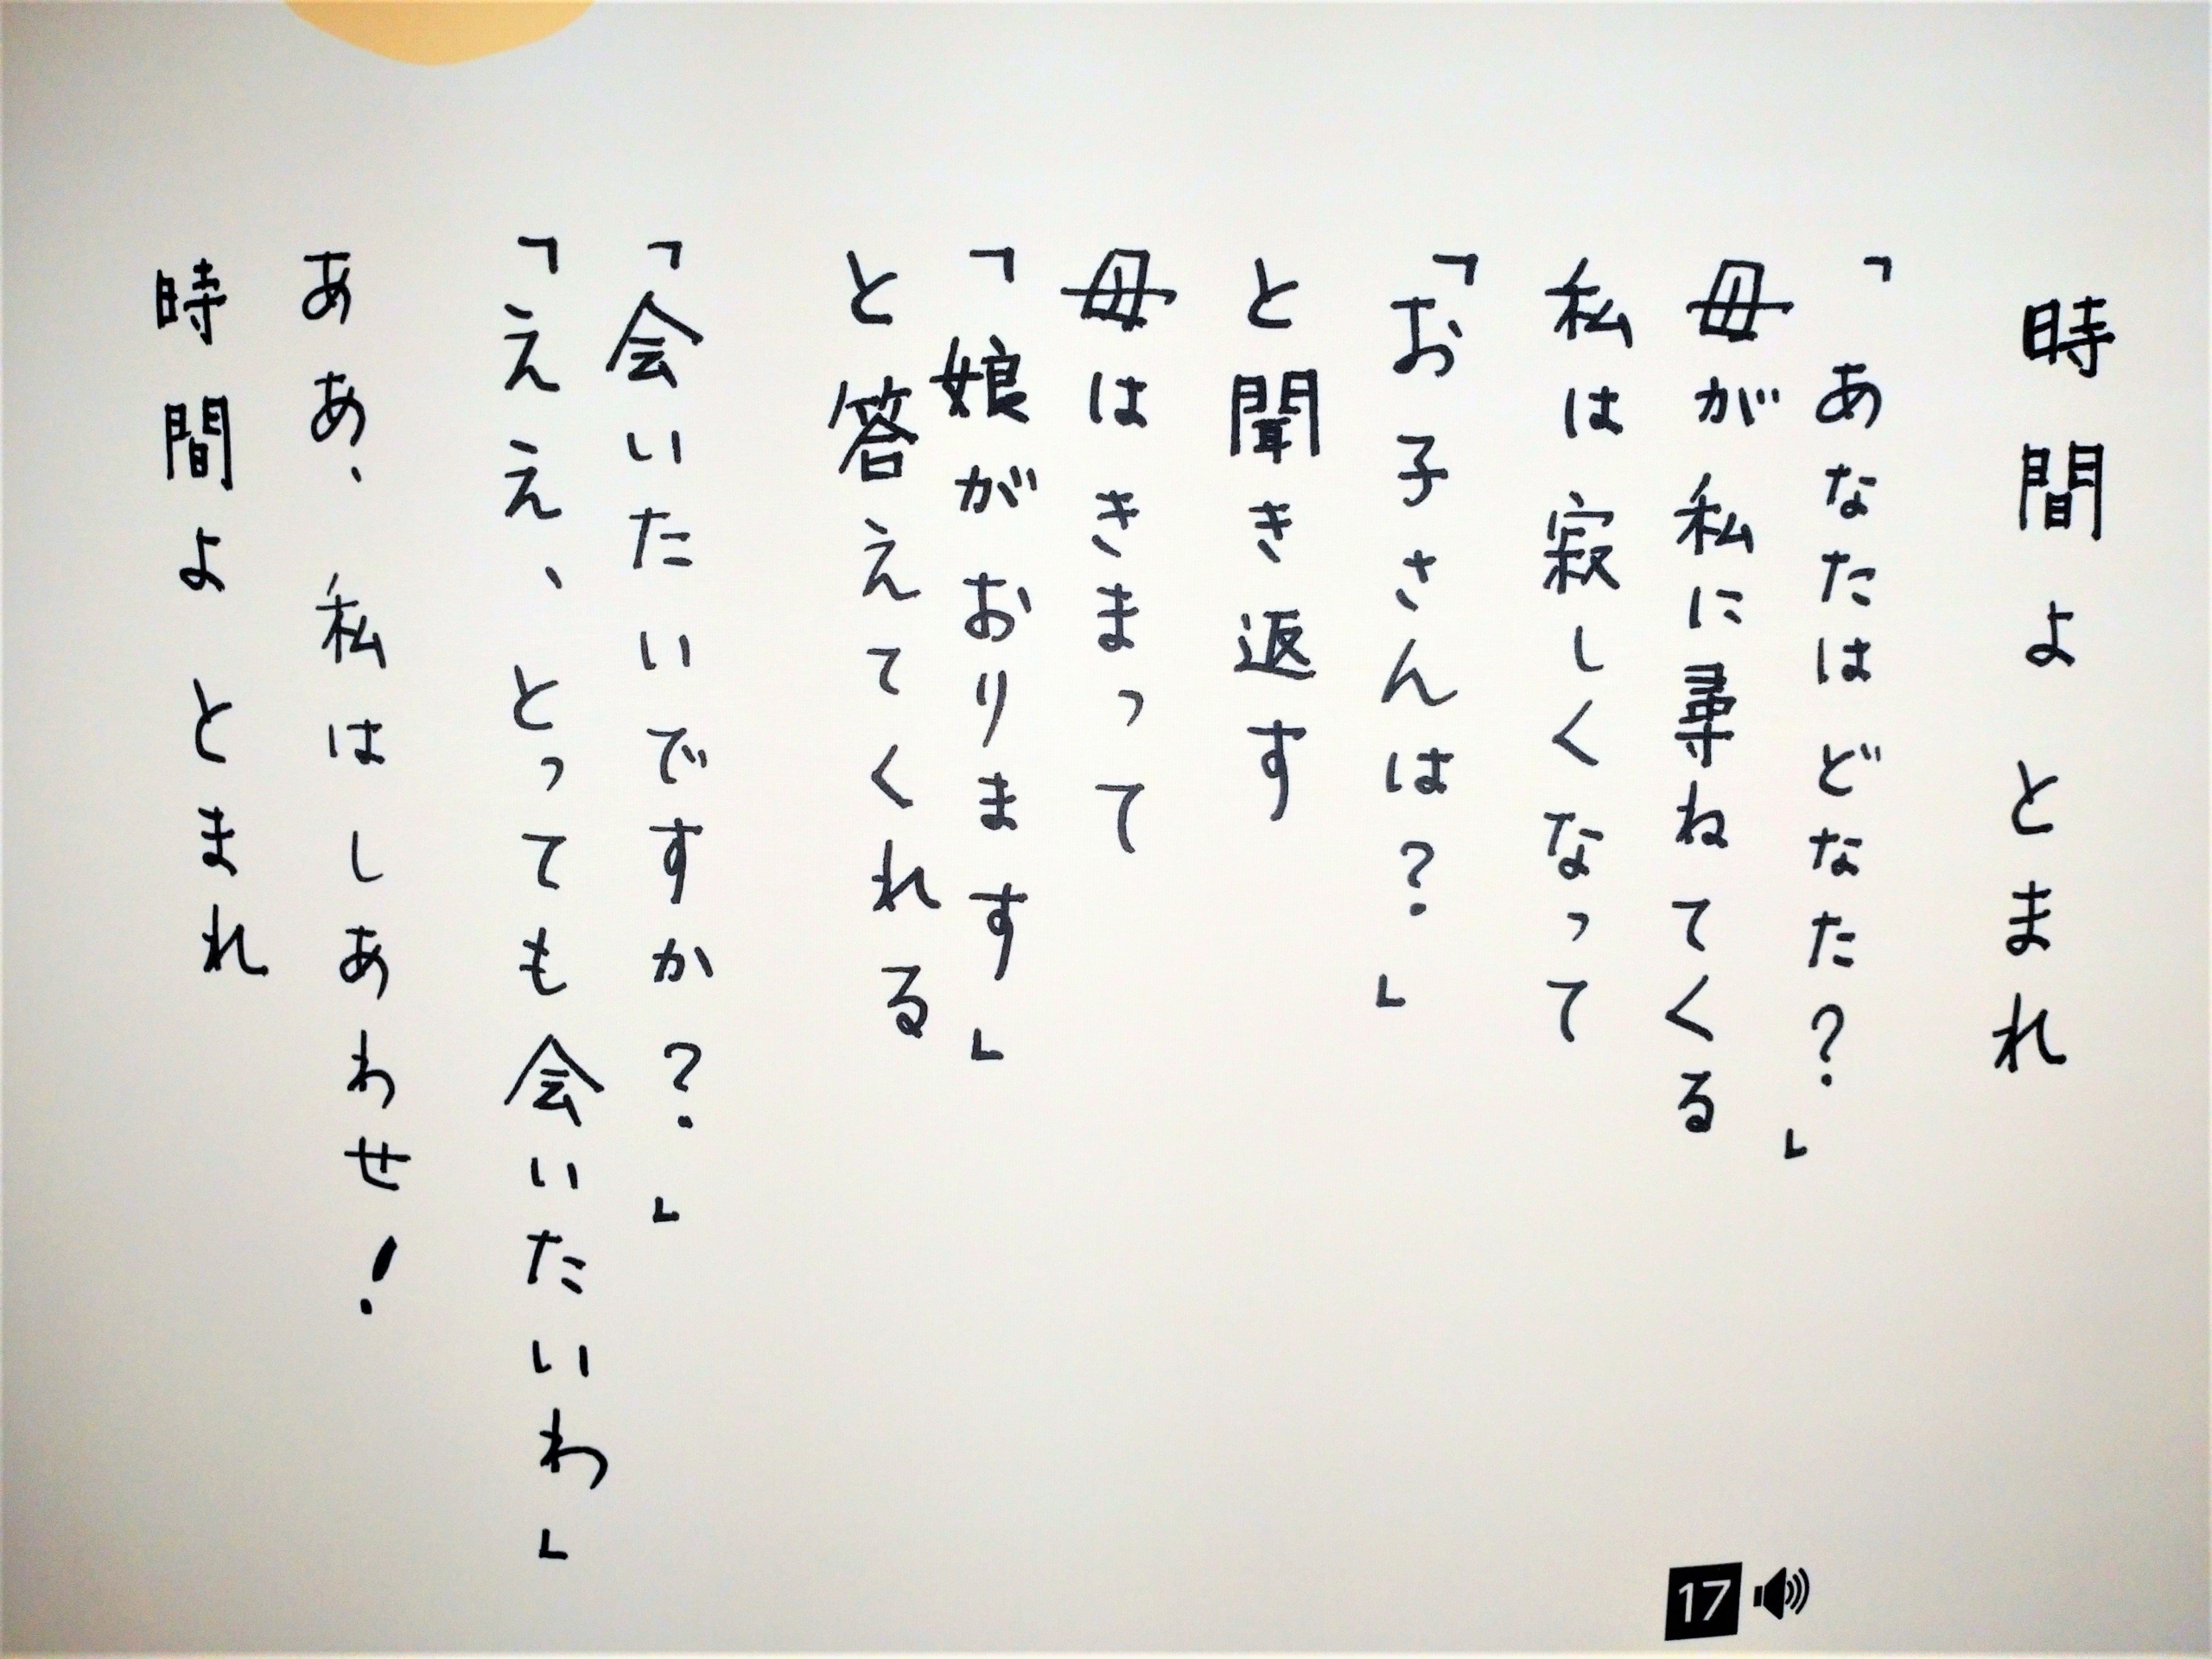 時間よとまれ
「あなたはどなた？」
母が私に尋ねてくる
私は寂しくなって
「お子さんは？」
と聞き返す
母はきまって
「娘がおります」
と答えてくれる
「会いたいですか？」
「ええ、とっても会いたいわ」
ああ、私はしあわせ！
時間よとまれ
17